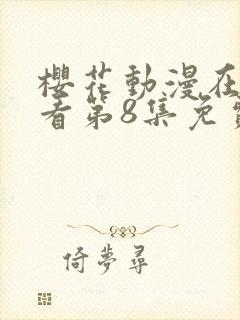 櫻花動漫在
看第8集免
倚夢尋